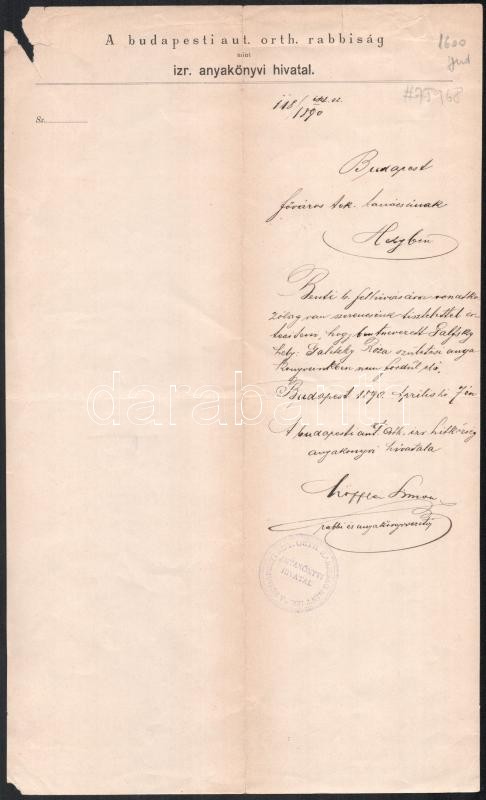 A budapesti aut. orth. rabbiság
mint
izr. anyakönyvi hivatal.
1600
Jud
#75968
Sz.
118/
1890
Budapest
főváros tek. tanácsának
Helyben
Fenti b. felhívására vonatko
zólag van szerencsém tisztelettel ér
tesíteni, hogy
hely: Galitzky Róza születése anya
könyvünkben nem fordul elő.
Budapest 1890. Április hó 7én
A budapesti aut. Orth. izr. hitközség
anyakönyvi hivatala
Löffler Simon
rabbi és anyakönyvvezető
darabanth
ANYAKÖNYVI
HIVATAL